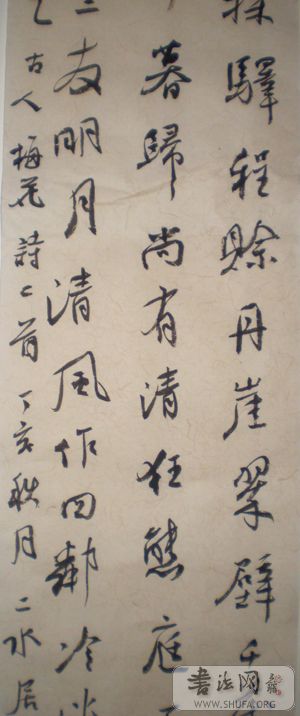 驛程賒丹崖翠壁千
暮歸尚有清狂態庭
三友明月清風作四鄰冷淡
古人梅花詩二首丁亥秋月二水居
書法网
WWW.SHUFA.ORG